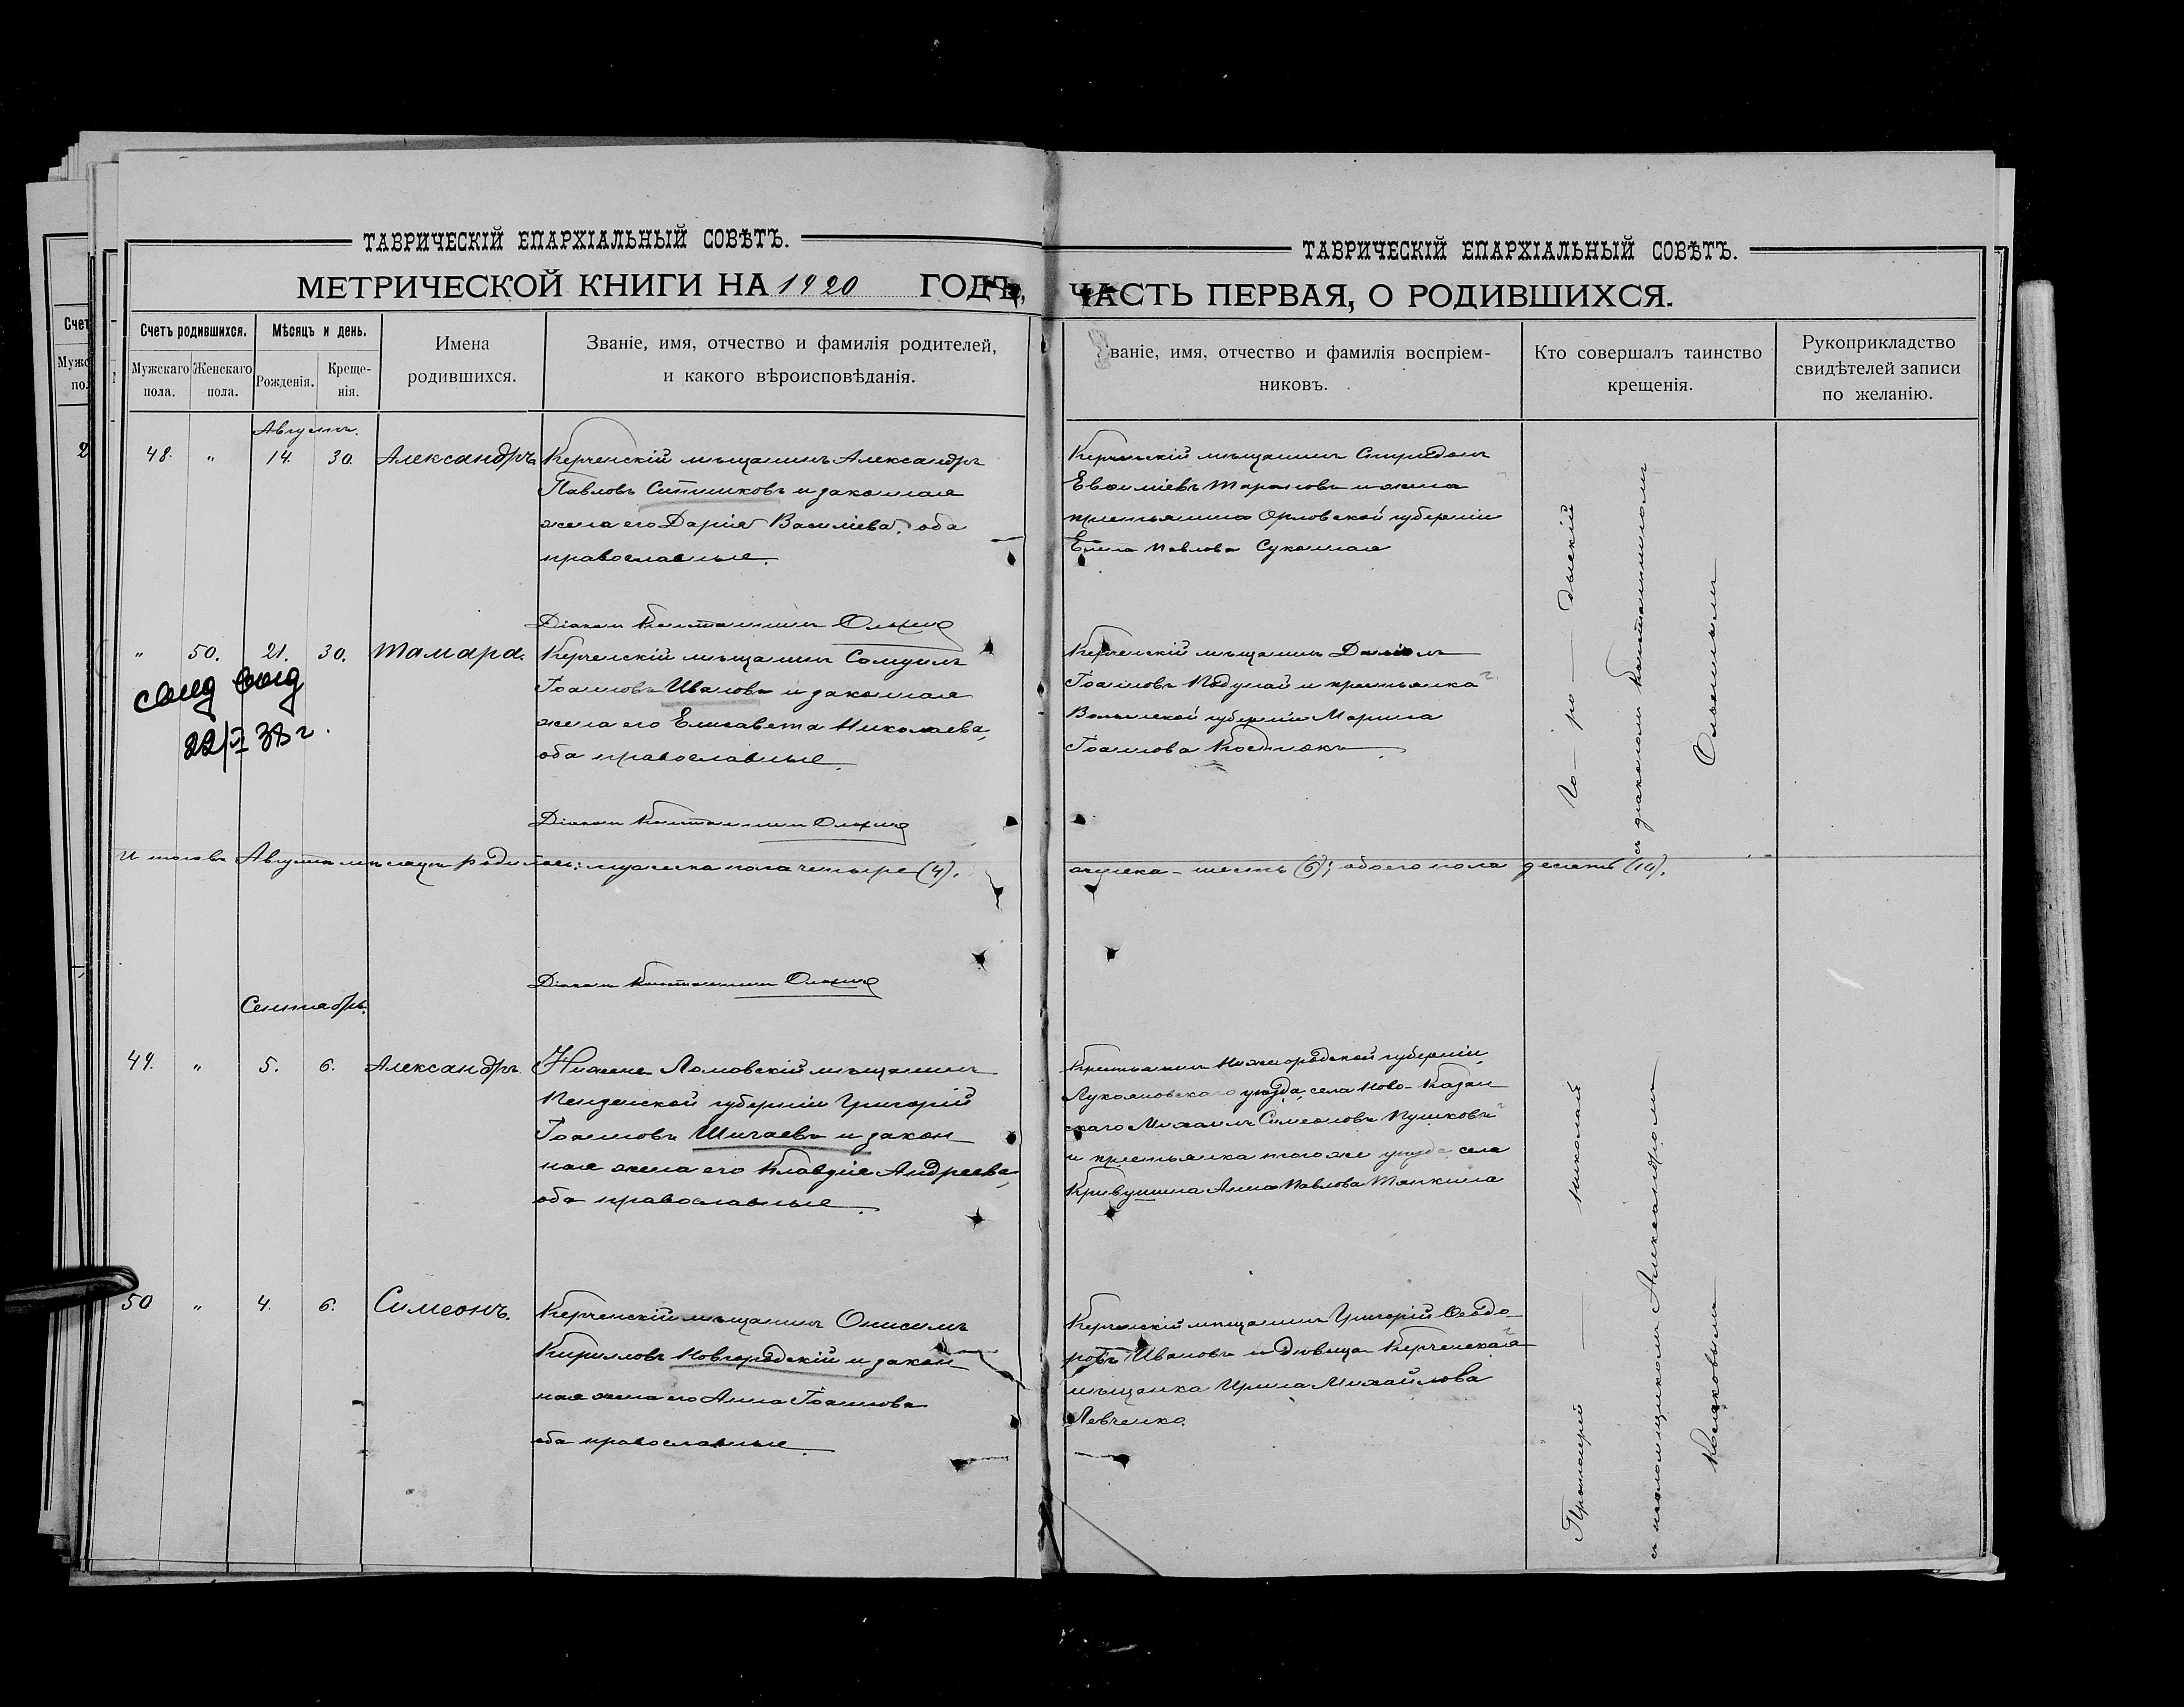 ТАВРИЧЕСКІЙ ЕПАРХІАЛЬНЫЙ СОВѢТЪ.
МЕТРИЧЕСКОЙ КНИГИ НА 1920 ГОДЪ,
Счетъ родившихся.
Мѣсяцъ и день.
Имена родившихся.
Званіе, имя, отчество и фамилія родителей,
и какого вѣроисповѣданія.
Мужскаго пола.
Женскаго пола.
Рожденія.
Креще-
нія.
Августъ.
48. " 14. 30. Александръ
Керченскій мѣщанинъ Александръ
Павловъ и законная
жена его Дарія Васильева, оба
православные.
Діаконъ Константинъ
" 50. 21. 30. Тамара.
Керченскій мѣщанинъ Самуилъ
Іоанновъ Ивановъ и законная
жена его Елисавета Николаева,
оба православные.
22/II 38 г.
Діаконъ Константинъ
Итого въ Августѣ мѣсяцѣ родилось: мужеска пола четыре (4),
Діаконъ Константинъ
Сентябрь.
49. " 5. 6. Александръ.
Нижне-Ломовскій мѣщанинъ
Пензенской губерніи Григорій
Іоанновъ Шигаевъ и закон-
ная жена его Клавдія Андреева,
оба православные.
50 " 4. 6. Симеонъ.
Керченскій мѣщанинъ Онисимъ
Кирилловъ Новгородскій и закон-
ная жена его Анна Іоаннова
оба православные.
ТАВРИЧЕСКІЙ ЕПАРХІАЛЬНЫЙ СОВѢТЪ.
ЧАСТЬ ПЕРВАЯ, О РОДИВШИХСЯ.
ваніе, имя, отчество и фамилія воспріем-
никовъ.
Кто совершалъ таинство
крещенія.
Рукоприкладство
свидѣтелей записи
по желанію.
Керченскій мѣщанинъ Спиридонъ
Евѳиміевъ Тарановъ и жена
крестьянина Орловской губерніи
Елена Павлова
Керченскій мѣщанинъ Даніилъ
Іоанновъ и крестьянка
Волынской губерніи Марина
Іоаннова Костюкъ
женска - шесть (6); обоего пола десять (10).
Крестьянинъ Нижегородской губерніи,
Лукояновскаго уѣзда, села Ново-Казан
скаго Михаилъ Симеоновъ Пушковъ
и крестьянка того же уѣзда села
Анна Павлова Тяпкина
Керченскій мѣщанинъ Григорій Ѳеодо-
ровъ Ивановъ и дѣвица Керченская
мѣщанка Ирина Михайлова
Левченко.
съ діакономъ Константиномъ
Протоіерей Николай
съ псаломщикомъ Александромъ